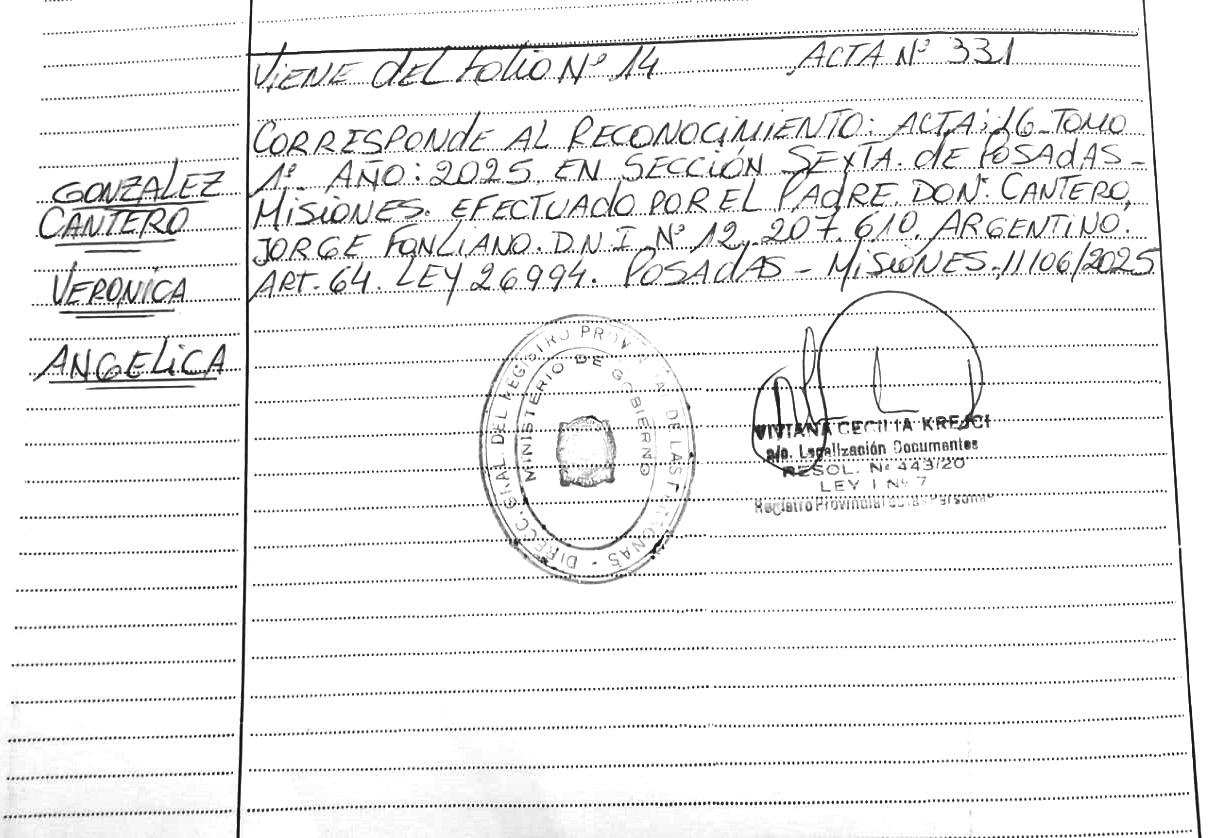 VIENE DEL FOLIO Nº 14 ACTA Nº 331
CORRESPONDE AL RECONOCIMIENTO: ACTA: 16 TOMO
1º AÑO: 2025 EN SECCIÓN SEXTA. DE POSADAS -
MISIONES. EFECTUADO POR EL PADRE. DON. CANTERO,
JORGE FONLIANO. D.N.I Nº 12.207.610. ARGENTINO.
ART. 64. LEY 26994. POSADAS - MISIONES. 11/06/2025
GONZALEZ
CANTERO
VERONICA
ANGELICA
DIRECC. GRAL DEL REGISTRO PROVINCIAL DE LAS PERSONAS -
MINISTERIO DE GOBIERNO
VIVIANA CECILIA KREJCI
a/c. Legalización Documentos
RESOL. Nº 443/20
LEY I Nº 7
Registro Provincial de las Personas